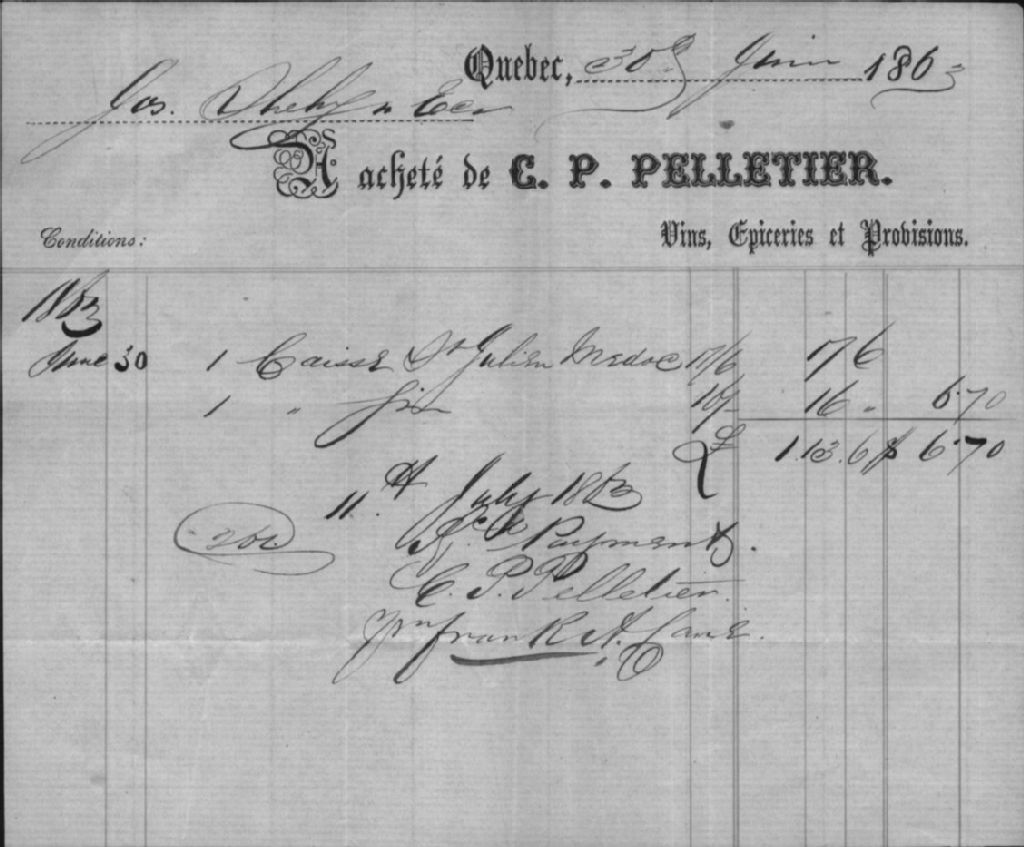 Quebec, 30 Juin 1863
Jos. Shehyn Ecr
A acheté de C. P. PELLETIER.
Conditions: Vins, Epiceries et Provisions.
1863
June 30 1 Caisse St Julien Medoc 17/6 17 6
1 " Gin 16/- 16 " 6.70
£ 1.13.6 $ 6.70
11th July 1863
Payment
C. P. Pelletier.
Frank A.